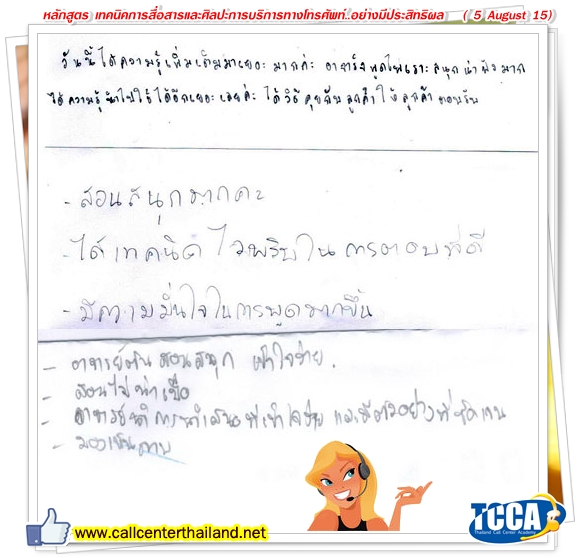 หลักสูตร เทคนิคการสื่อสารและศิลปะการบริการทางโทรศัพท์..อย่างมีประสิทธิผล ( 5 August 15)
วันนี้ได้ความรู้เพิ่มเติมมาเยอะ มากค่ะ อาจารย์พูดไพเราะ สนุก น่าฟัง มาก
ได้ความรู้นำไปใช้ได้อีกเยอะเลยค่ะ ได้วิธีคุยกับลูกค้าให้ลูกค้า
- สอนสนุกมากคะ
- ได้เทคนิค ไหวพริบในการตอบที่ดี
- มีความมั่นใจในการพูดมากขึ้น
- อาจารย์ สอนสนุก เข้าใจง่าย.
- สอนไม่น่าเบื่อ
- อาจารย์มีการนำเสนอที่เข้าใจง่าย และมีตัวอย่างที่ชัดเจน
- มองเห็นภาพ
www.callcenterthailand.net
TCCA
Thailand Call Center Academy